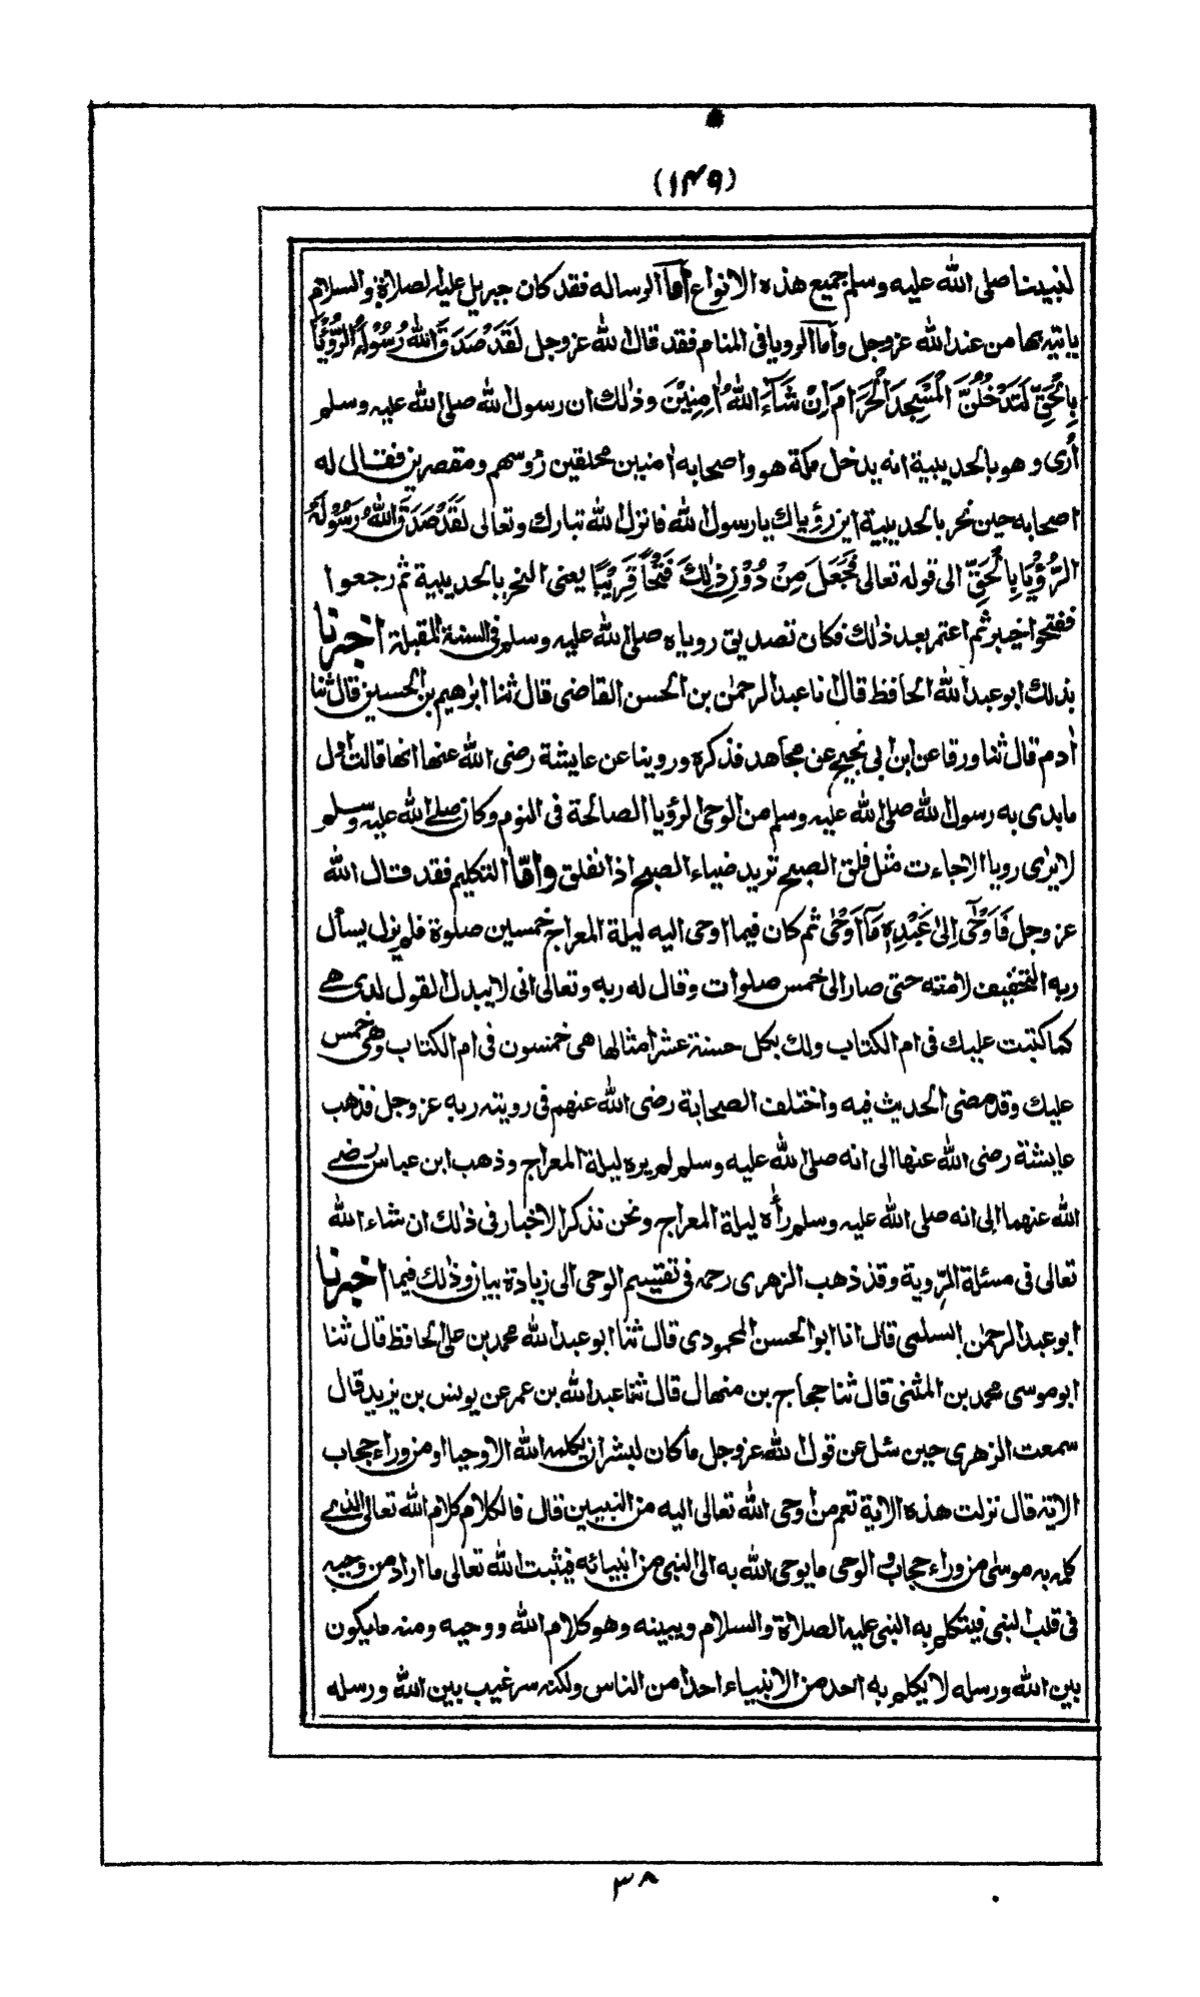 (١٤٩)
لنبينا صلى الله عليه وسلم جميع هذه الانواع أما الرساله فقد كان جبريل عليه الصلاة والسلام
ياتيه بها من عند الله عز وجل وأما الرويا فى المنام فقد قال الله عز وجل لَقَدْ صَدَقَ اللهُ رَسُوْلَهُ الرُّؤْيَا
بِالْحَقِّ لَتَدْخُلُنَّ الْمَسْجِدَ الْحَرَامَ اِنْ شَآءَ اللهُ اٰمِنِيْنَ وذلك ان رسول الله صلى الله عليه وسلم
أرى وهو بالحديبية انه يدخل مكة هو واصحابه امنين محلقين رؤسهم ومقصرين فقال له
اصحابه حين نحر بالحديبية اين رؤياك يا رسول الله فانزل الله تبارك وتعالى لَقَدْ صَدَقَ اللهُ رَسُوْلَهُ
الرُّؤْيَا بِالْحَقِّ الى قوله تعالى فَجَعَلَ مِنْ دُوْنِ ذٰلِكَ فَتْحًا قَرِيْبًا يعنى النحر بالحديبية ثم رجعوا
ففتحوا خيبر ثم اعتمر بعد ذلك فكان تصديق روياه صلى الله عليه وسلم فى السنة المقبلة اخبرنا
بذلك ابو عبد الله الحافظ قال انا عبد الرحمٰن بن الحسن القاضى قال ثنا ابرٰهيم بن الحسين قال ثنا
اٰدم قال ثنا ورقا عن ابن ابى نجيح عن مجاهد فذكره وروينا عن عايشة رضى الله عنها انها قالت اول
ما بدى به رسول الله صلى الله عليه وسلم من الوحى الرؤيا الصالحة فى النوم وكان صلى الله عليه وسلم
لا يرى رويا الا جاءت مثل فلق الصبح تريد ضياء الصبح اذا نفلق وامّا التكليم فقد قال الله
عز وجل فَاَوْحٰٓى اِلٰى عَبْدِهٖ مَآ اَوْحٰى ثم كان فيما اوحى اليه ليلة المعراج خمسين صلوة فلم يزل يسأل
ربه التخفيف لامته حتى صار الى خمس صلوات وقال له ربه وتعالى انى لا يبدل القول لدى هى
كما كتبت عليك فى ام الكتاب ولك بكل حسنة عشر امثالها هى خمسون فى ام الكتاب وهى خمس
عليك وقد مضى الحديث فيه واختلف الصحابة رضى الله عنهم فى رويته ربه عز وجل فذهب
عايشة رضى الله عنها الى انه صلى الله عليه وسلم لم يره ليلة المعراج وذهب ابن عباس رضى
الله عنهما إلى انه صلى الله عليه وسلم رأه ليلة المعراج ونحن نذكر الاخبار فى ذلك ان شاء الله
تعالى فى مسئلة الرّوية وقد ذهب الزهرى رحمه فى تقسيم الوحى الى زيادة بيان وذلك فيما اخبرنا
ابو عبد الرحمٰن السلمى قال انا ابو الحسن المحمودى قال ثنا ابو عبد الله محمد بن على الحافظ قال ثنا
ابو موسى محمد بن المثنى قال ثنا حجاج بن منهال قال ثنا عبد الله بن عمر عن يونس بن يزيد قال
سمعت الزهرى حين سئل عن قول الله عز وجل ما كان لبشر ان يكلمه الله الا وحيا او من وراء حجاب
الاية قال نزلت هذه الاية تعم من اوحى الله تعالى اليه من النبيين قال فالكلام كلام الله تعالى الذى
كلم به موسى من وراء حجاب والوحى ما يوحى الله به الى النبى من انبيائه فيثبت الله تعالى ما اراد من وحيه
فى قلب النبى فيتكلم به النبى عليه الصلاة والسلام ويبينه وهو كلام الله ووحيه ومنه ما يكون
بين الله ورسله لا يكلم به احد من الانبياء احدا من الناس ولكنه سر غيب بين الله ورسله
٣٨